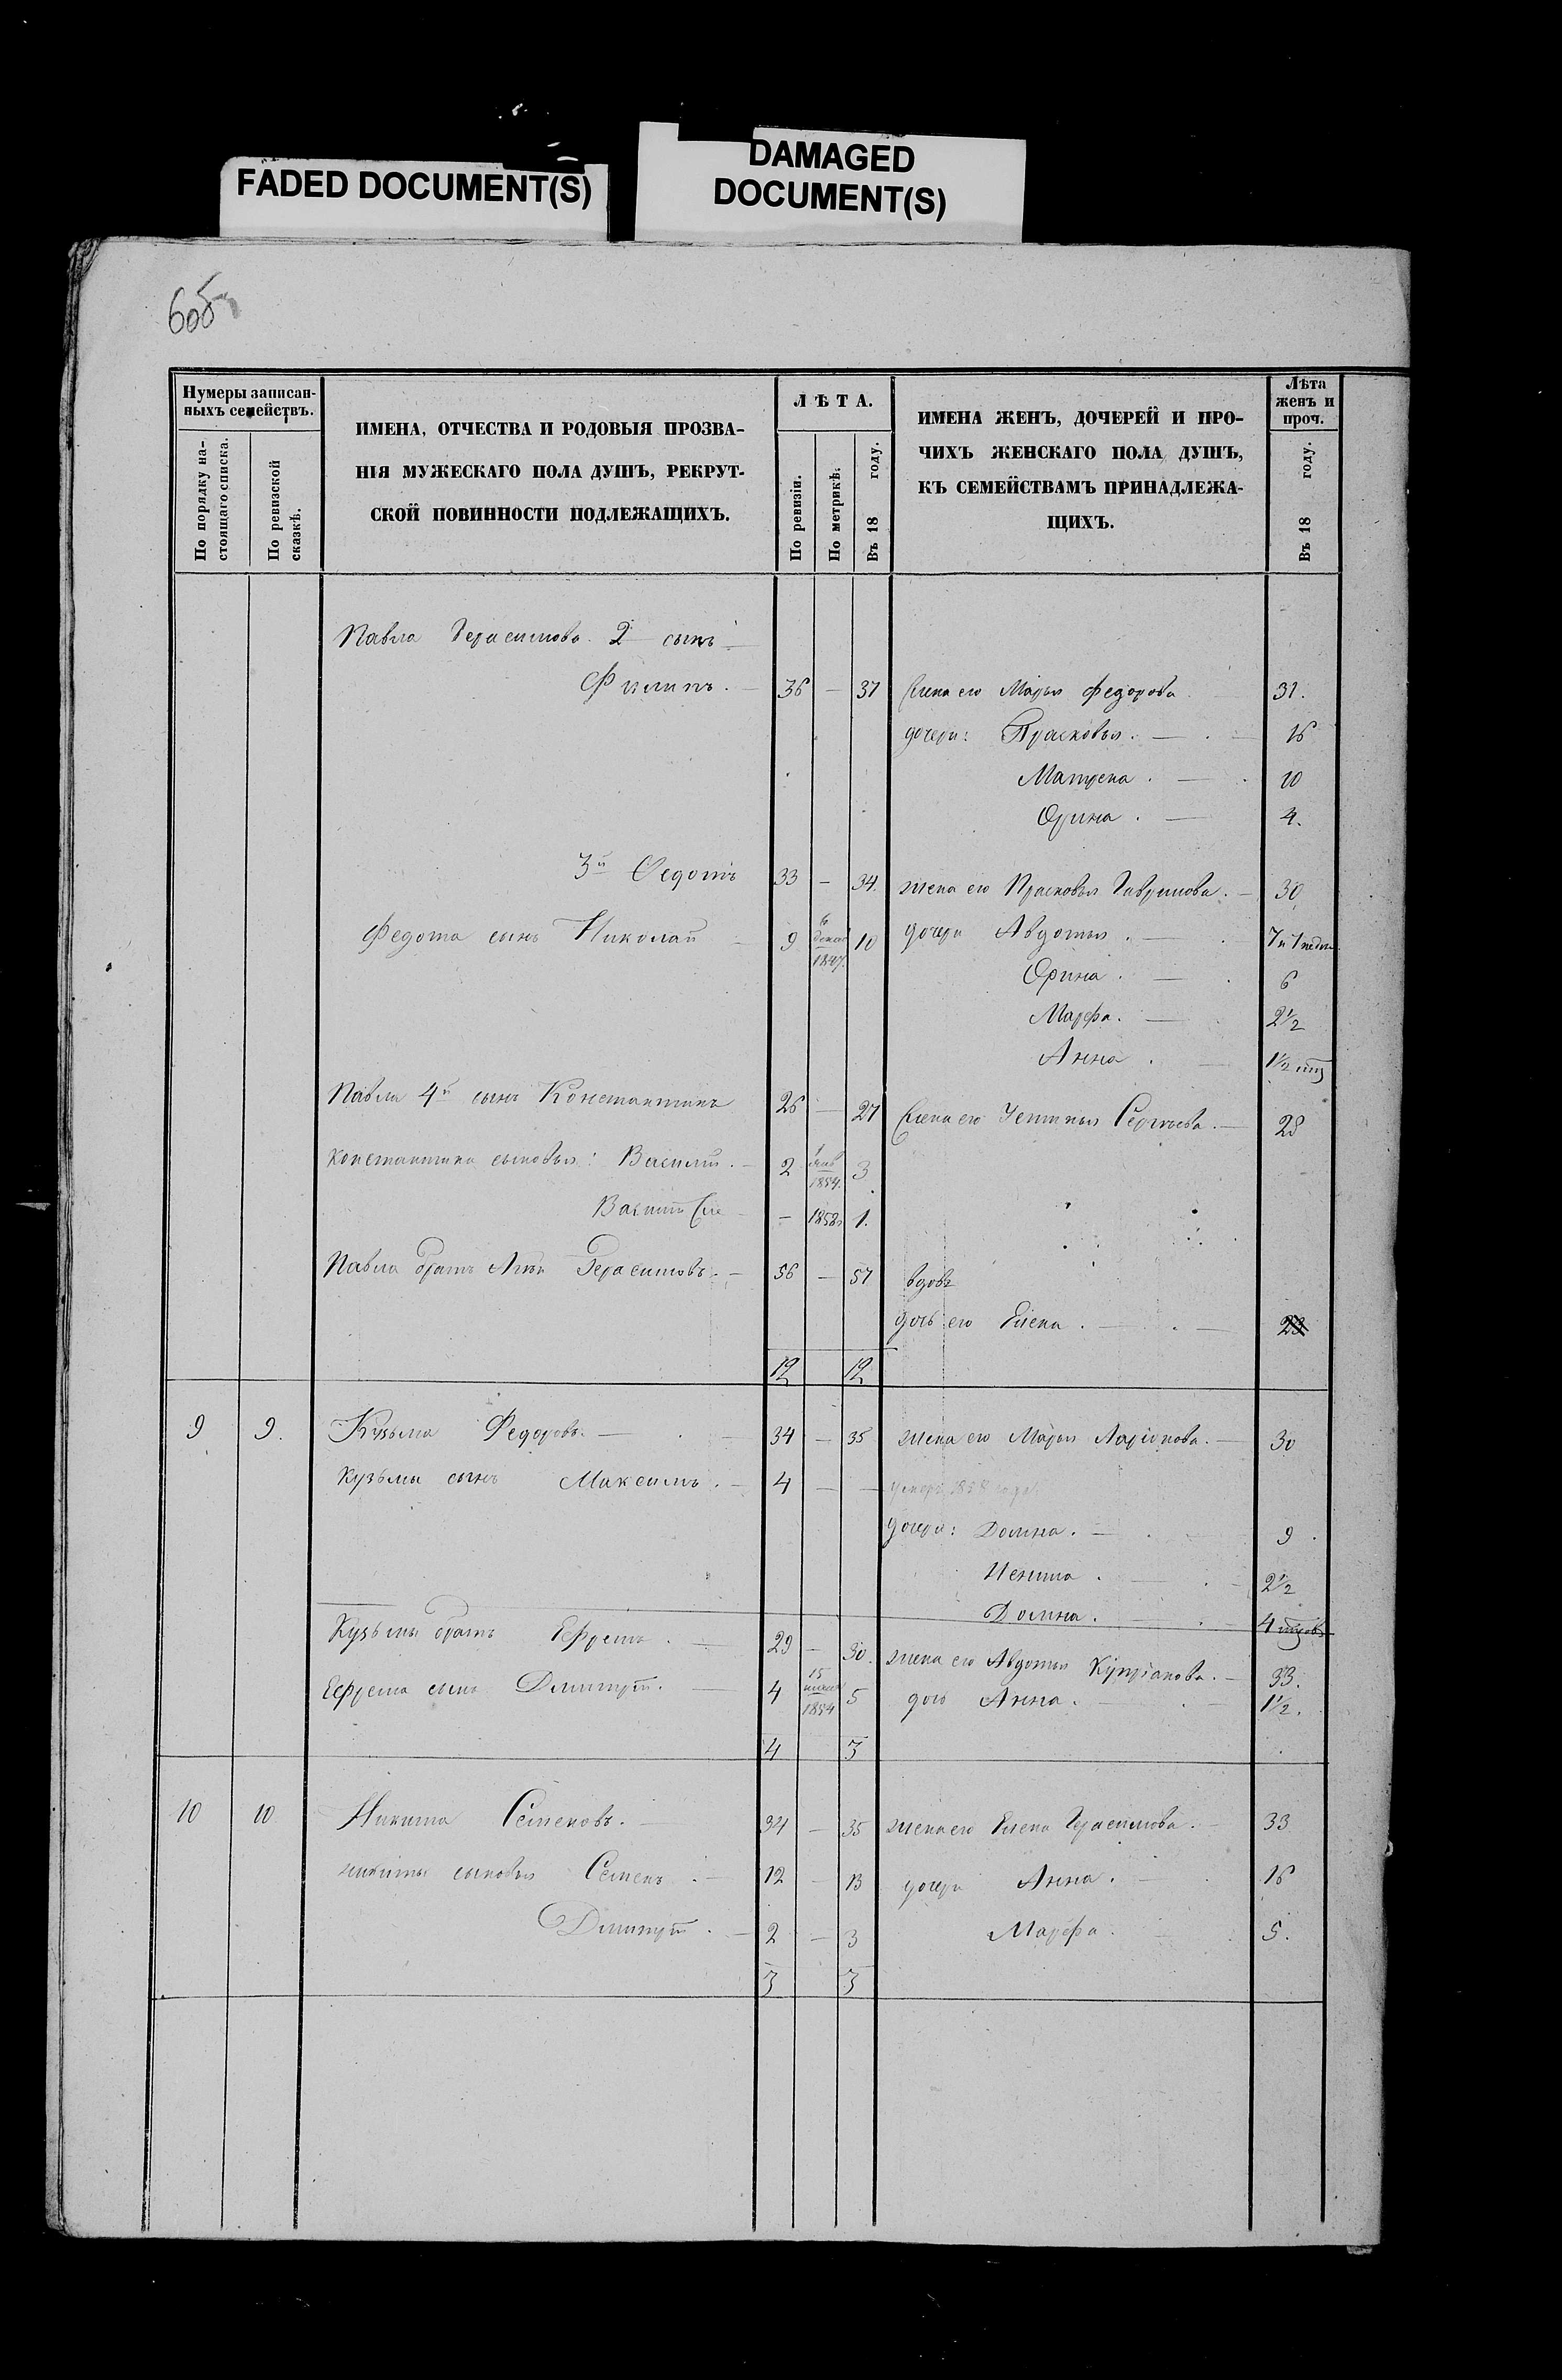 FADED DOCUMENT(S)
DAMAGED
DOCUMENT(S)
6об
Нумеры записан-
ныхъ семействъ.
По порядку на-
стоящаго списка.
По ревизской
сказкѣ.
ИМЕНА, ОТЧЕСТВА И РОДОВЫЯ ПРОЗВА-
НІЯ МУЖЕСКАГО ПОЛА ДУШЪ, РЕКРУТ-
СКОЙ ПОВИННОСТИ ПОДЛЕЖАЩИХЪ.
ЛѢТА.
По ревизіи.
По метрикѣ.
Въ 18 году.
ИМЕНА ЖЕНЪ, ДОЧЕРЕЙ И ПРО-
ЧИХЪ ЖЕНСКАГО ПОЛА ДУШЪ,
КЪ СЕМЕЙСТВАМЪ ПРИНАДЛЕЖА-
ЩИХЪ.
Лѣта
женъ и
проч.
Въ 18 году.
Павла Герасимова 2 сынъ
Филипъ. 36 — 37 жена его Марья Федорова 31.
дочери: Прасковья. 16
Матрена. 10
Орина. 4.
3й Федотъ 33 — 34. жена его Прасковья Гаврилова. 30
Федота сынъ Николай 9 6 декаб 1847. 10 дочери Авдотья. 7 и 1 недел
Орина. 6
Марфа. 2½
Анна. 1½
Павла 4й сынъ Константинъ 26 — 27 жена его Устинья Сергѣева. 28
Константина сыновья: Василій. 2 1 1854. 3
Василій — 1858 1.
Павла братъ Герасимовъ. 56 — 57 вдовъ
дочь его Елена. 23
12 12
9 9. Кузьма Федоровъ. 34 — 35 жена его Марья Ларіонова. 30
Кузьмы сынъ Максимъ. 4 — — умеръ 1858 года.
дочери: Домна. 9
2½
Домна. 4
Кузьмы братъ Ефремъ. 29 — 30. жена его Авдотья Купріанова. 33.
Ефрема сынъ Дмитрій. 4 15 1854 5 дочь Анна. 1½.
4 3
10 10 Никита Семеновъ. 34 — 35 жена его Елена Герасимова. 33
никиты сыновья Семенъ. 12 — 13 дочери Анна. 16
Дмитрій. 2 — 3 Марфа. 5.
3 3